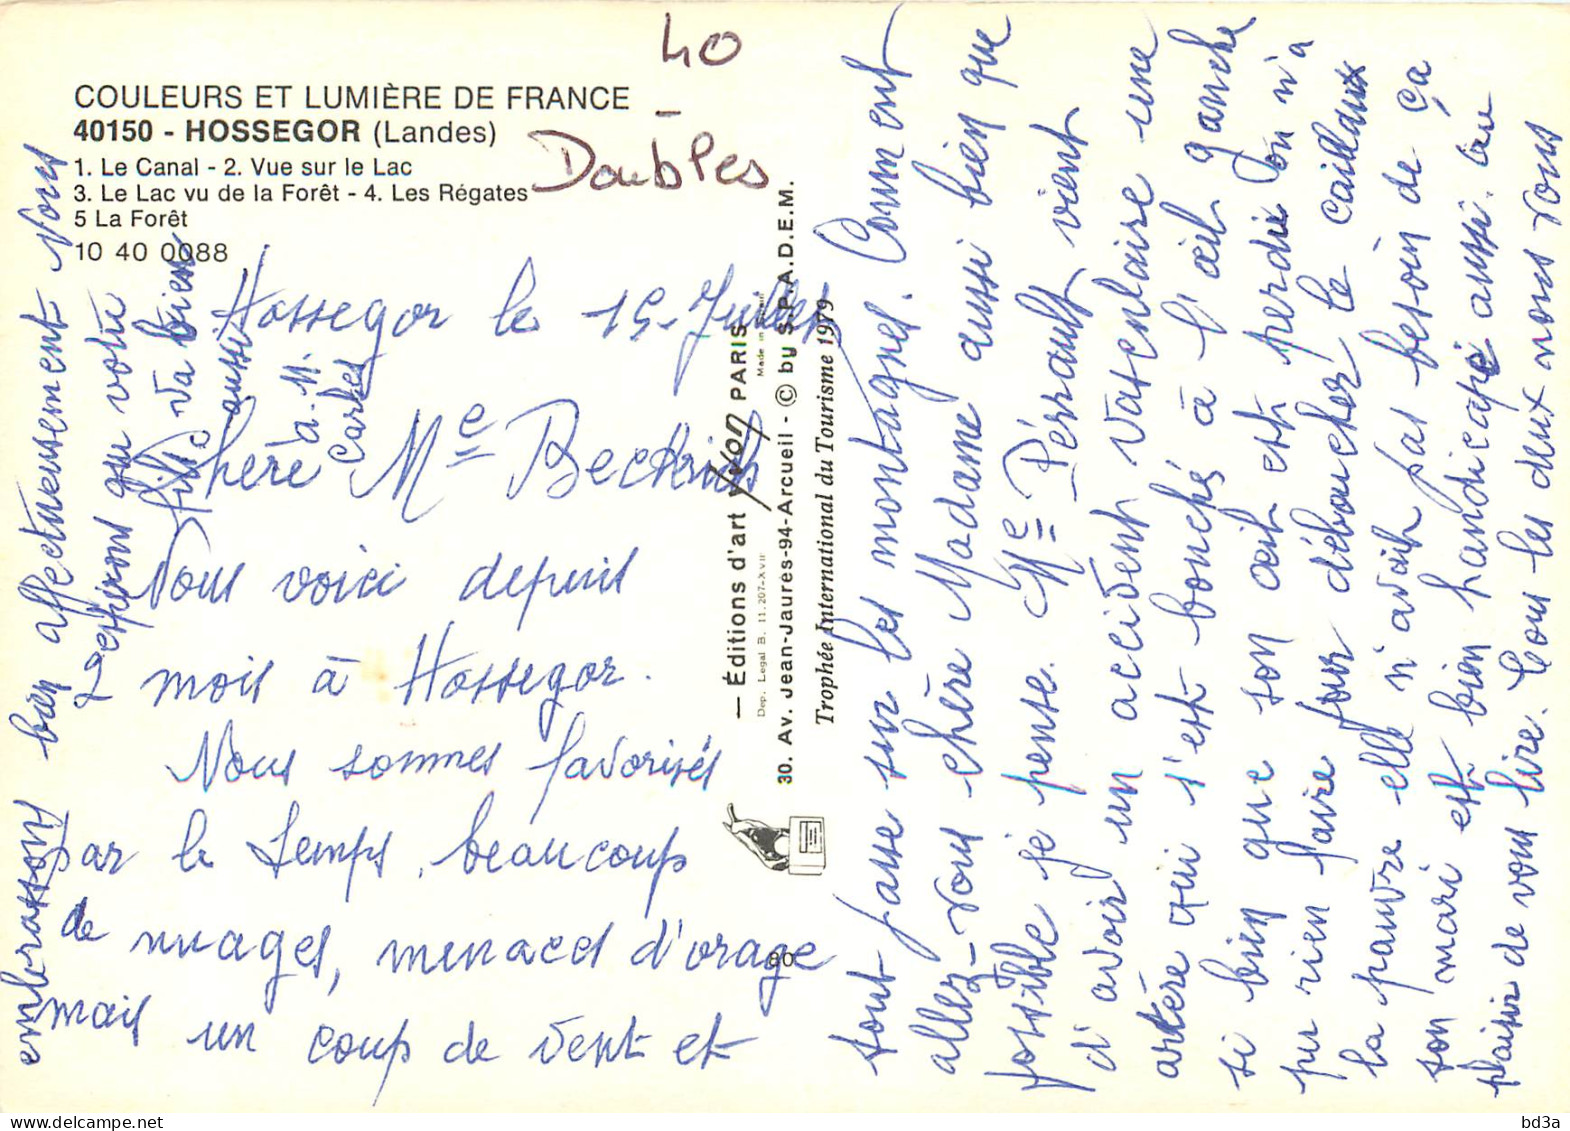 40
-
Doubles
COULEURS ET LUMIÈRE DE FRANCE
40150 - HOSSEGOR (Landes)
1. Le Canal - 2. Vue sur le Lac
3. Le Lac vu de la Forêt - 4. Les Régates
5 La Forêt
10 40 0088
Hossegor le 15 Juillet
Chère Me
Nous voici depuis
mois à Hossegor.
Nous sommes favorisés
par le temps, beaucoup
de nuages, menaces d'orage
mais un coup de vent et
tout passe sur les montagnes. Comment
allez-vous chère Madame aussi bien que
possible je pense. Me Pérrault vient
d'avoir un accident vasculaire une
artère qui s'est bouchés à l'œil gauche
si bien que son œil est perdu on n'a
pu rien faire pour déboucher le caillaux
la pauvre elle n'avait pas besoin de ça
son mari est bien handicapé aussi. au
plaisir de vous lire. Tous les deux nous vous
embrassons bien affectueusement. Nous
espérons que votre
fils va bien
aussi
à M.
— Éditions d'art Yvon PARIS —
Dep. Legal B. 11.207-XVII
Made in
30. Av. Jean-Jaurès-94-Arcueil - © by S.P.A.D.E.M.
Trophée International du Tourisme 1979
80
bd3a